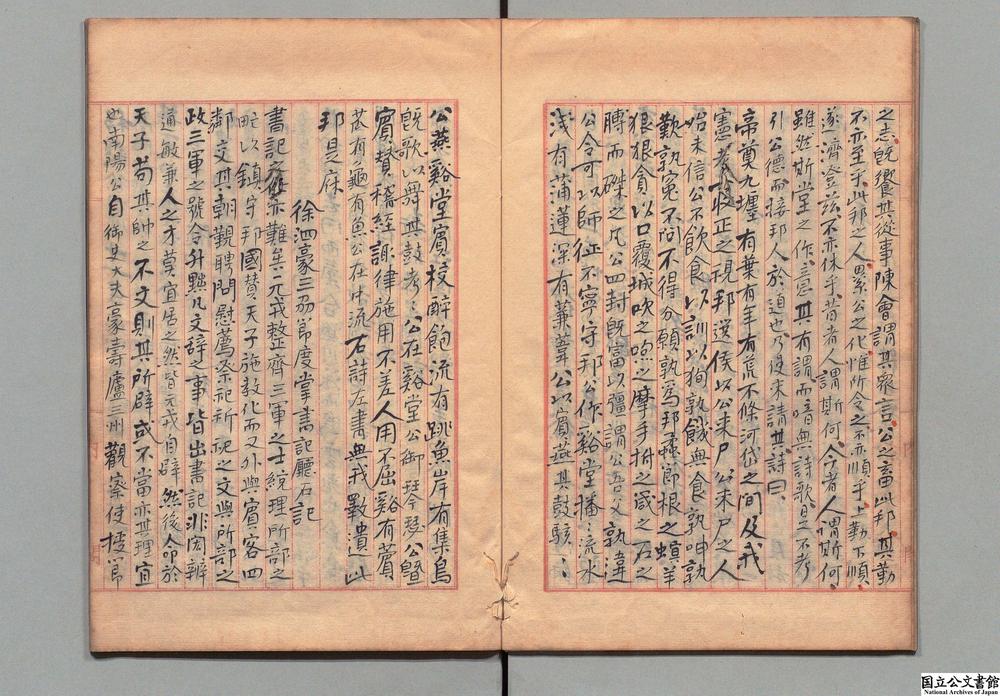 之志既饗其從事陳會謂其衆言公之畜此邦其勤
不亦至乎此邦之人累公之化惟所令之不亦順乎上勤下順
遂濟登茲不亦休乎昔者人謂斯何今者人謂斯何
雖然斯堂之作意其有謂而喑無詩歌是不考
引公德而接邦人於道也乃使來請其詩曰
帝奠九壥有葉有年有荒不條河岱之間及我
憲考一收正之視邦選侯以公來尸公來尸之人
始未信公不飲食以訓以徇孰飢無食孰呻孰
歎孰冤不問不得分願孰爲邦蟊節根之螟羊
狠狼貪以口覆城吹之呴之摩手拊之箴之石之
膊而磔之凡公四封既富以彊謂公吾父孰違
公令可以師征不寧守邦公作谿堂播〻流水
淺有蒲蓮深有蒹葦公以賓燕其鼓駭〻
公燕谿堂賓校醉飽流有跳魚岸有集鳥
既歌以舞其鼓考〻公在谿堂公御琴瑟公曁
賓贊稽經諏律施用不差人用不屈谿有薲
苽有龜有魚公在中流右詩左書無我斁遺此
邦是庥
徐泗豪三州節度掌書記廳石記
書記之任亦難矣元戎整齊三軍之士統理所部之
甿以鎮守邦國贊天子施教化而又外與賓客四
鄰交其朝覲聘問慰薦祭祀祈祝之文與所部之
政三軍之號令升黜凡文辭之事皆出書記非閎辨
通敏兼人之才莫宜居之然皆元戎自辟然後命於
天子苟其帥之不文則其所辟或不當亦其理宜
也南陽公自御史大夫豪壽廬三州觀察使授節
国立公文書館
National Archives of Japan